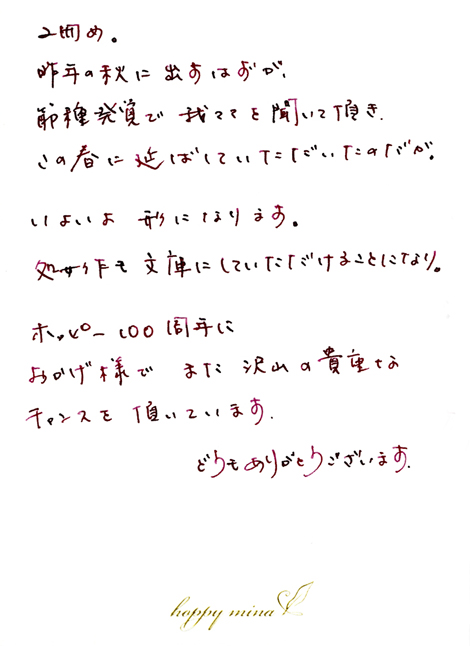 2冊め。
昨年の秋に出すはずが、
節種発覚で 我ママを聞いて頂き、
この春に延ばしていただいたのだが、
いよいよ 形になります。
処女作も文庫にしていただけることになり。
ホッピー100周年に
おかげ様で また 沢山の貴重な
チャンスを 頂いています。
どうもありがとうございます。
hoppy mina